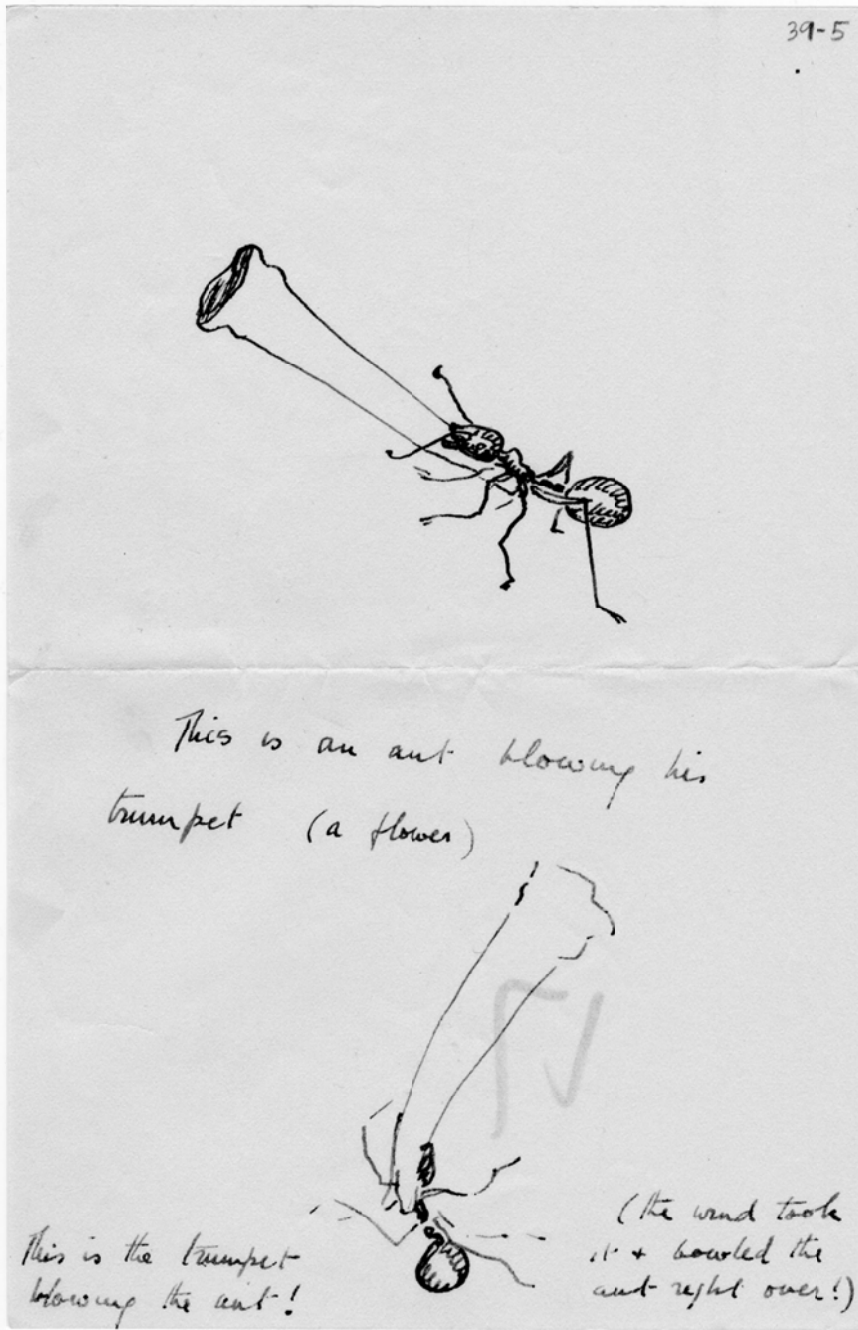 39-5
This is an ant blowing his
trumpet (a flower)
This is the trumpet
blowing the ant!
(the wind took
it + bowled the
ant right over!)